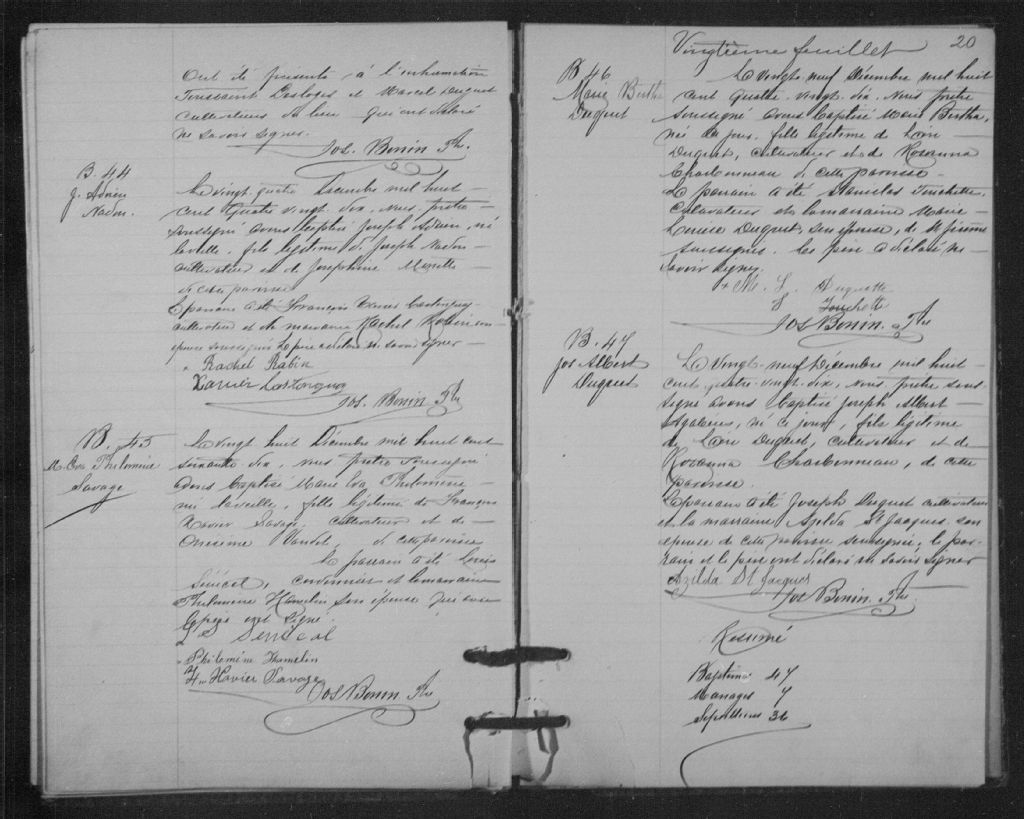 Ont été présents à l'inhumation
Toussaint Desloges et Marcel Duquet
cultivateurs du lieu qui ont déclaré
ne savoir signer.
Jos. Bonin Ptre.
B. 44
J. Adrien
Nadon.
Le vingt quatre Décembre mil huit
cent quatre vingt dix, nous prêtre
soussigné avons baptisé Joseph Adrien, né
la veille, fils légitime de Joseph Nadon
cultivateur et de Joséphine
de cette paroisse
Le parrain a été François Xavier
cultivateur et la marraine Rachel Robin son
épouse soussignés Le père a déclaré ne savoir signer
Rachel Rabin
Xavier
Jos. Bonin Ptre
B. 45
M. Eva Philomène
Savage
Le vingt huit Décembre mil huit cent
soixante dix, nous prêtre soussigné
avons baptisé Marie Eva Philomène
née la veille, fille légitime de François
Xavier Savage, cultivateur et de
Onésime, de cette paroisse
Le parrain a été Louis
Sénécal, cordonnier et la marraine
Philomène Hamelin son épouse qui avec
le père ont signé.
L S Sénécal
Philomène Hamelin
F. Xavier Savage
Jos Bonin Ptre
Vingtième feuillet
20
B 46
Marie Bertha
Duquet
Le vingt-neuf Décembre mil huit
cent quatre-vingt-dix, nous prêtre
soussigné avons baptisé Marie Bertha,
née ce jour, fille légitime de Léon
Duquet, cultivateur et de Rosanna
Charbonneau de cette paroisse
Le parrain a été Stanislas Touchette,
cultivateur et la marraine Marie
Louise Duquet, son épouse, de St
soussignés. Le père a déclaré ne
savoir signer.
M. L. Duquette
S Touchette
Jos Bonin Ptre
B. 47
Jos Albert
Duquet
Le vingt-neuf Décembre mil huit
cent quatre-vingt-dix, nous prêtre sous-
signé avons baptisé Joseph Albert
né ce jour, fils légitime
de Léon Duquet, cultivateur et de
Rosanna Charbonneau, de cette
paroisse.
Le parrain a été Joseph Duquet cultivateur
et la marraine Azilda St Jacques son
épouse de cette paroisse soussignée; le par-
rain et le père ont déclaré ne savoir signer
Azilda St Jacques
Jos Bonin Ptre
Résumé
Baptêmes 47
Mariages 7
Sépultures 36